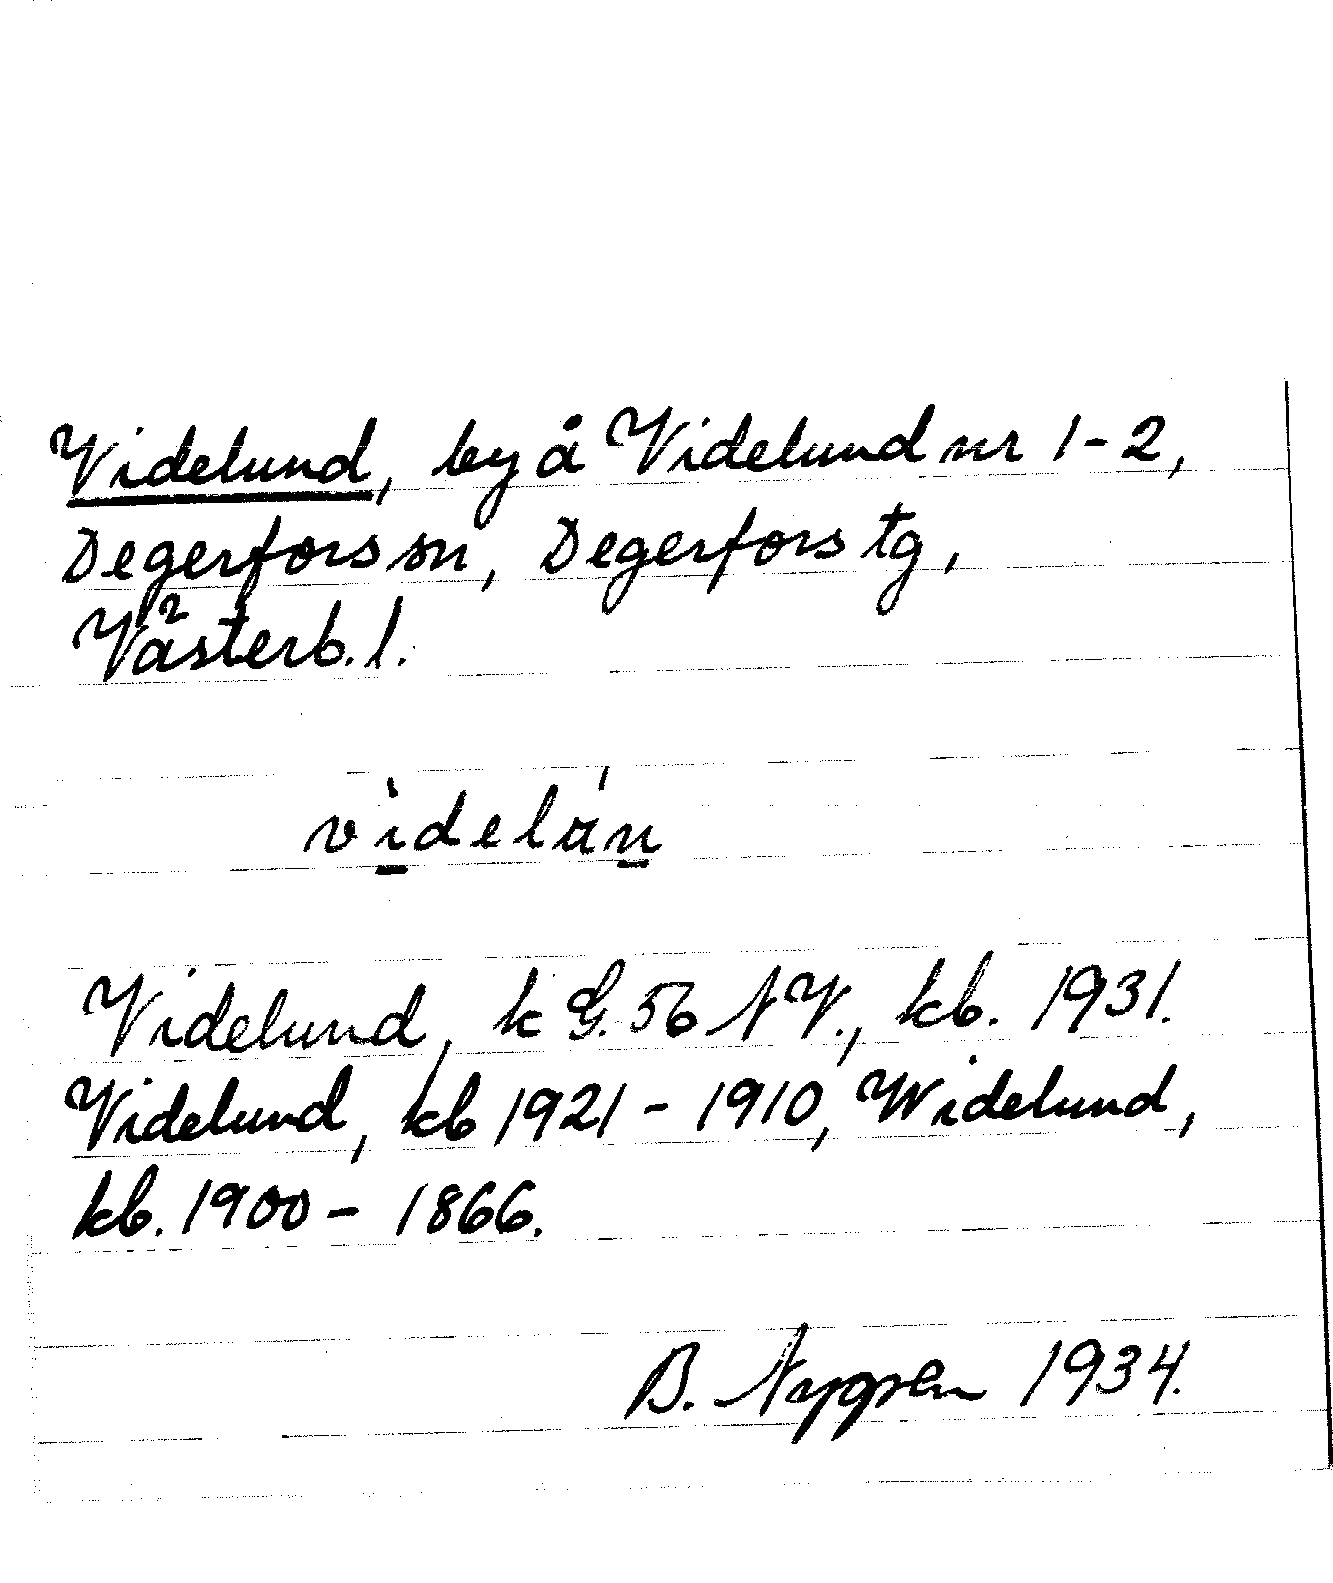 Videlund, by å Videlund nr 1-2,
Degerfors sn, Degerfors tg,
Västerb. l.
vìdelún
Videlund, k G. 56 NV., kb. 1931.
Videlund, kb 1921 - 1910, Widelund,
kb. 1900 - 1866.
B. Nygren 1934.